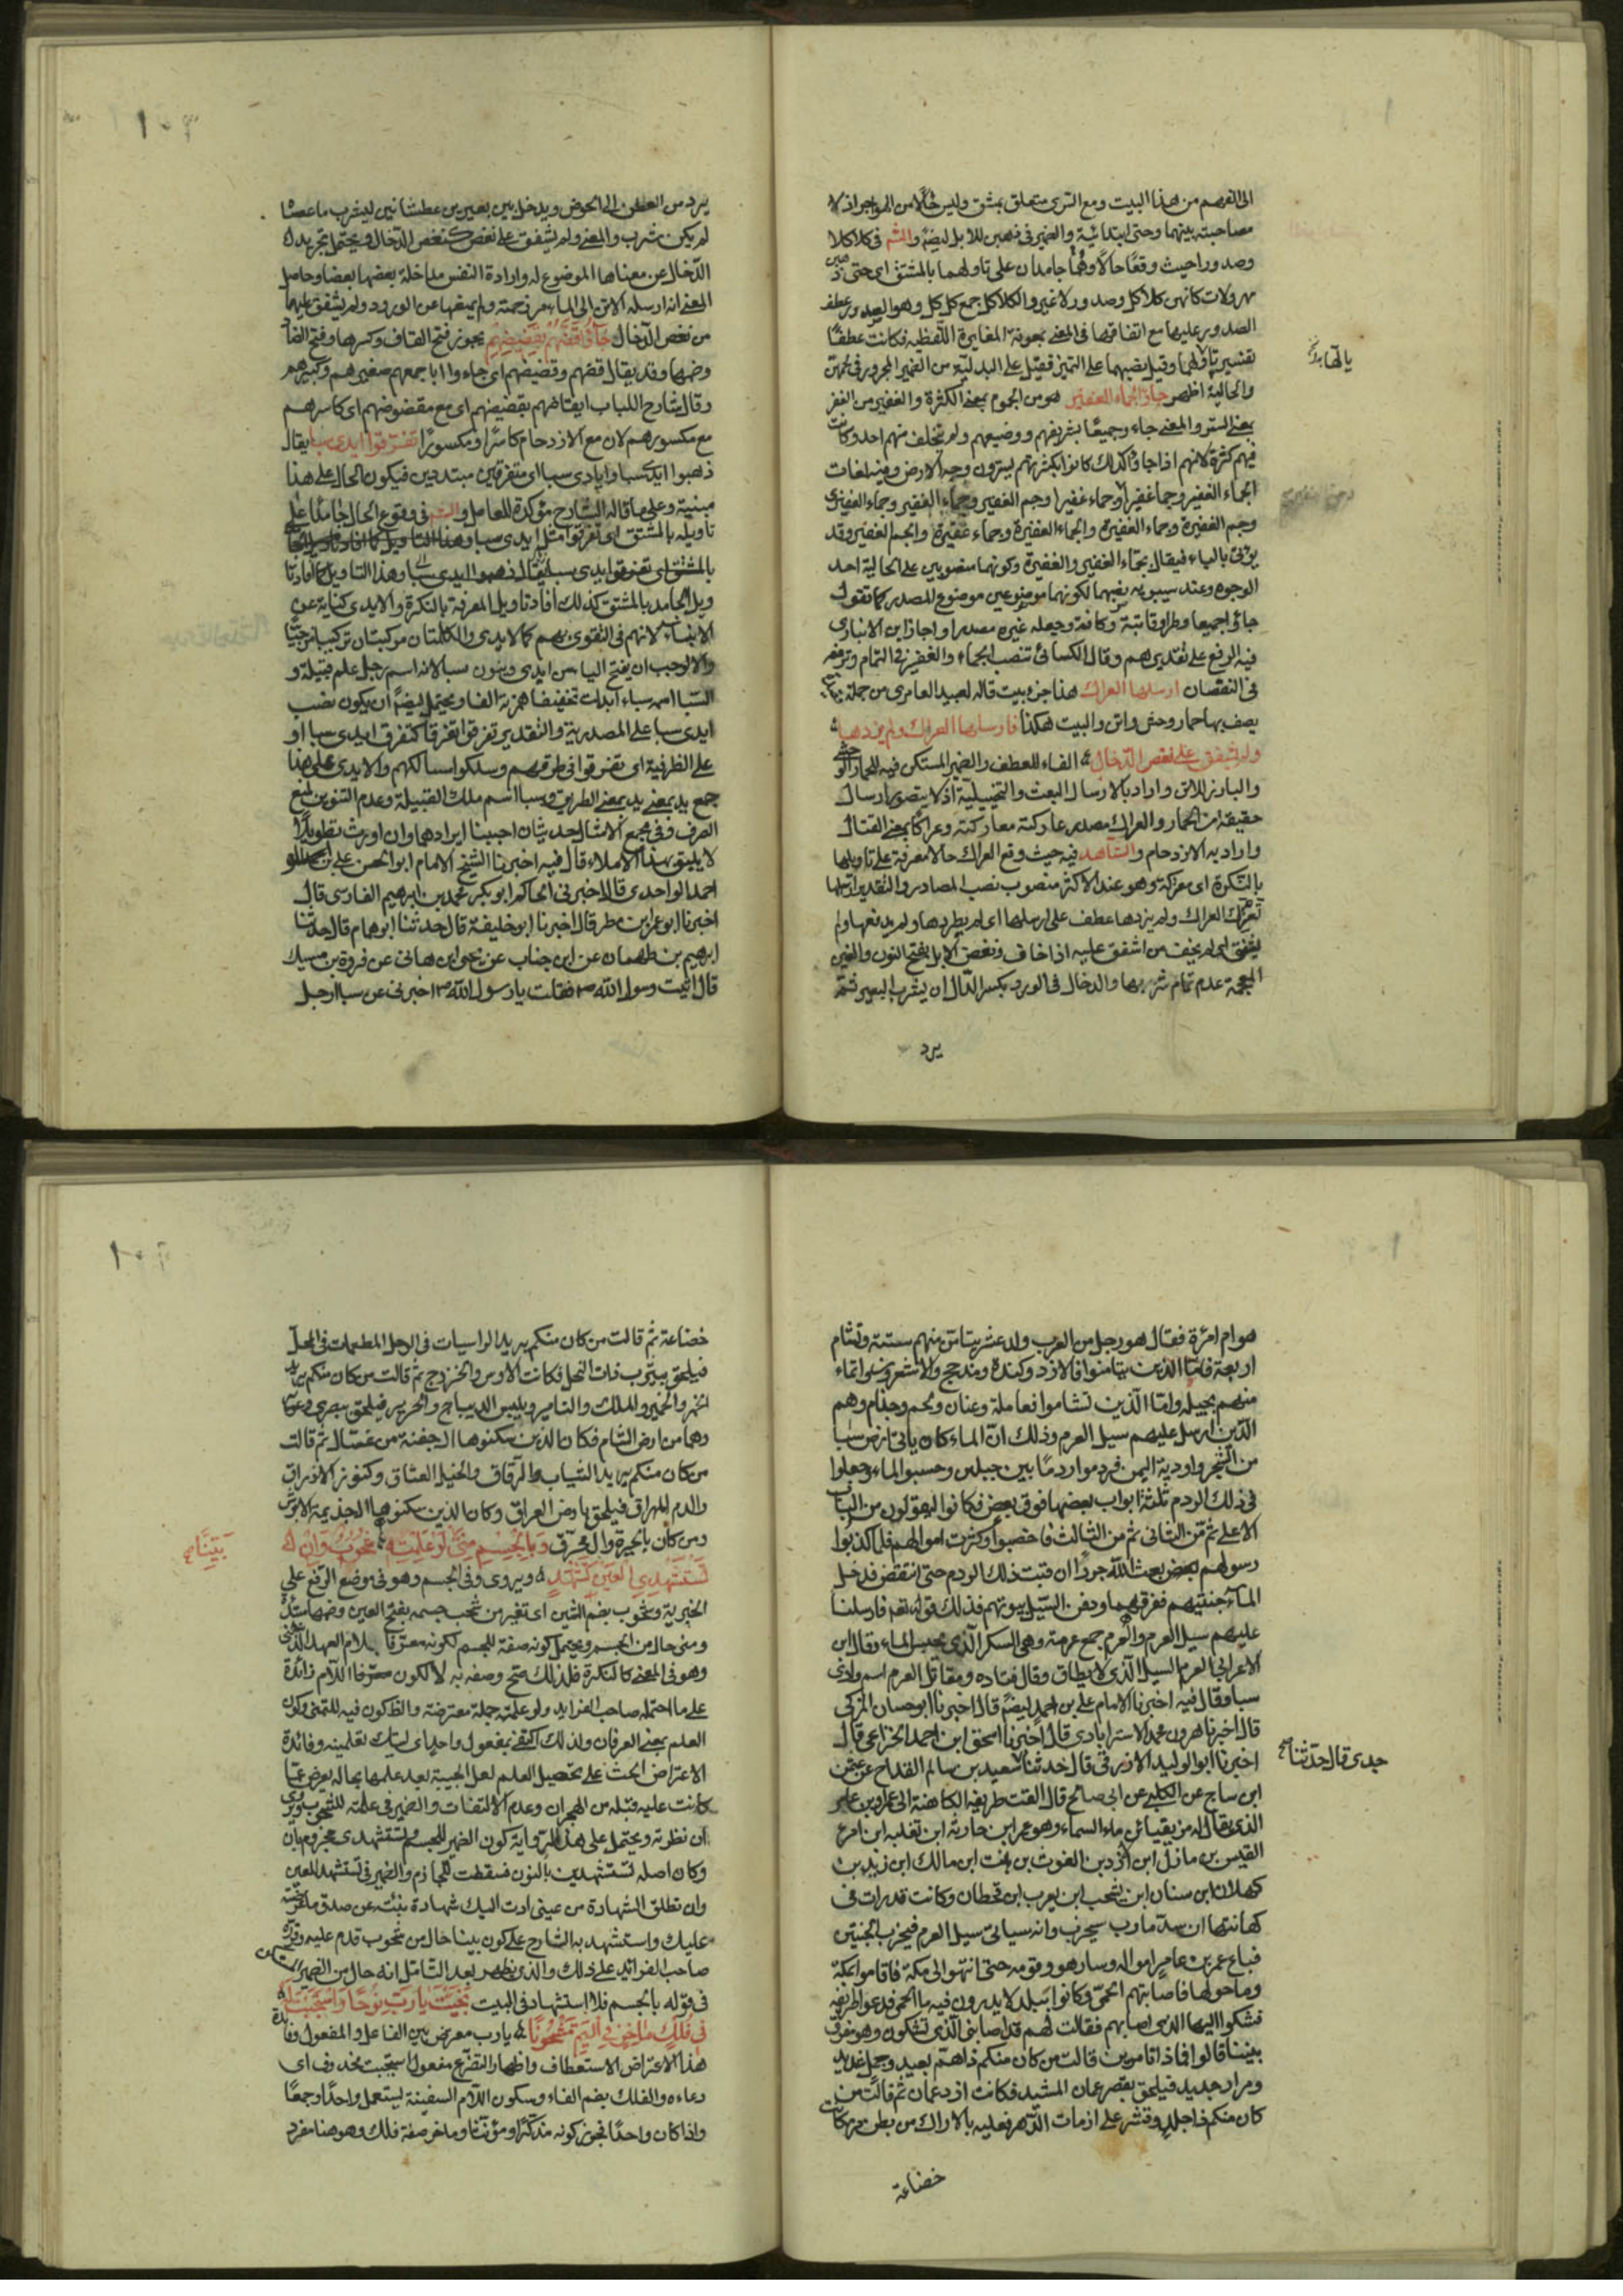 الى الفهم من هذا البيت ومع الترى متعلق بمشق وليس حالا من الهواجر اذ لا
مصاحبة بينهما وحتى ابتدائية والضمير فى ذهبن للابل ايضا والشم فى كلاكلا
وصدورا حيث وقعا حالا وهما جامدان على تاولهما بالمشتق اى حتى ذهبن
مهزولات كانهن كلاكل وصدور لا غير والكلاكل جمع كلكل وهو الصدر وعطف
الصدور عليها مع اتفاقها فى المعنى بمعونة المغايرة اللفظية فكانت عطفا
تفسيريا لها وقيل نصبهما على التميز فقيل على البدلية من الضمير المجرور فى لحمهن
يالها
والحالية اظهر جاؤا الجماء الغفير هو من الجموم بمعنى الكثرة والغفير من الغفر
بمعنى الستر والمعنى جاء وجميعا بشريفهم ووضيعهم ولم يتخلف منهم احد وكانت
فيهم كثرة لانهم اذا جاؤا كذلك كانوا بكثرتهم يسترون وجه الارض وفيه لغات
الجماء الغفير وجما غفيرا وجماء غفيرا وجم الغفير وجماء الغفير وجماء الغفيرى
وجم الغفيرة وجماء الغفيرة والجماء الغفيرة وجماء غفيرة والجم الغفير وقد
يؤتى بالباء فيقال بجماء الغفير والغفيرة وكونهما منصوبين على الحالية احد
الوجوه وعند سيبويه نصبهما لكونهما موضوعين موضوع المصدر كما تقول
جاؤا جميعا وطرا وقاتبة وكافة وجعله غيره مصدرا واجاز ابن الانبارى
فيه الرفع على تقدير هم وقال الكسائى تنصب الجماء والغفير فى التمام وترفعه
فى النقصان ارسلها العراك هذا جزء بيت قاله لعبيد العامرى من جملة
يصف بها حمار وحش واتن والبيت هكذا فارسلها العراك ولم يذدها
ولم يشفق على نغص الدخال الفاء للعطف والضمير المستكن فيه للحمار
والبارز للاتن واراد بالارسال البعث والتخييلية اذ لا يتصور ارسال
حقيقة من الحمار والعراك مصدر عاركته معاركة وعراكا بمعنى القتال
واراد به الازدحام والشاهد فيه حيث وقع العراك حالا معرفة على تاويلها
بالنكرة اى معركة وهو عند الاكثر منصوب نصب المصادر والتقدير ارسلها
تعترك العراك ولم يزدها عطف على ارسلها اى لم يطردها ولم يدفعها ولم
يشفق اى لم يخف من اشفق عليه اذا خاف ونغص الابل بفتح النون والغين
المعجمة عدم تمام شربها والدخال فى الورد بكسر الدال ان يشرب البعير ثم
يرد
يرد من العطن الى الحوض ويدخل بين بعيرين عطشانين ليشرب ما عصاه
لم يكن شرب والمعنى ولم يشفق على نغص كنغص الدخال ويحتمل تجريد
الدخال عن معناها الموضوع له وارادة النفس مداخلة بعضها بعضا وحاصل
المعنى انه ارسله الاتن الى الماء مزدحمة ولم يمنعها عن الورود ولم يشفق عليها
من نغص الدخال جاؤا قضهم بقضيضهم يجوز فتح القاف وكسرها وفتح الضاد
وضمها وقد يقال قضهم وقضيضهم اى جاءوا باجمعهم صغيرهم وكبيرهم
وقال شارح اللباب ايضا قضهم بقضيضهم اى مع مقضوضهم اى كاسرهم
مع مكسورهم لان مع الازدحام كاسرا ومكسورا تفرقوا ايدى سبا يقال
ذهبوا ايدى سبا وايادى سبا اى متفرقين مبتددين فيكون الحال على هذا
مبنية وعلى ما قاله الشارح مؤكدة للعامل والشم فى وقوع الحال جامدا على
بالمشتق اى تفرقوا ايدى سبا يقال ذهبوا ايدى سبا وهذا التاويل
ويل الجامد بالمشتق كذلك افاد تاويل المعرفة بالنكرة والايدى كناية عن
الابناء لانهم فى التقوى بهم كالايدى والكلمتان مركبتان تركيبا مزجيا
والاوجب ان يفتح الياء من ايدى وينون سبا لانه اسم رجل علم قبيلة و
السبا اسم سباء ابدلت تخفيفا همزته الفا ويحتمل ايضا ان يكون نصب
ايدى سبا على المصدرية والتقدير تفرقوا تفرقا كتفرق ايدى سبا او
على الظرفية اى تفرقوا فى طرقهم وسلكوا مسالكهم والايدى على هذا
جمع يد بمعنى يد بمعنى الطريق وسبا اسم ملك القبيلة وعدم التنوين لمنع
الصرف وفى مجمع الامثال حديثان اجبنا ايرادهما وان اورث تطويلا
لا يليق بهذا الاملاء قال فيه اخبرنا الشيخ الامام ابو الحسن على بن
احمد الواحدى قال اخبرنى الحاكم ابو بكر محمد بن ابرهيم الفارسى قال
اخبرنا ابو عمرو بن مطر قال اخبرنا ابو خليفة قال حدثنا ابو همام قال حدثنا
ابرهيم بن طهمان عن ابى جناب عن يحيى ابن هانى عن فروة بن مسيك
قال اتيت رسول الله ص فقلت يا رسول الله ص اخبرنى عن سبا ارجل
هو ام امرأة فقال هو رجل من العرب ولد عشر تيامن منهم ستة وتشام
اربعة فاما الذين تيامنوا فالازد وكندة ومذحج والاشعرون وانماء
منهم بجيلة واما الذين تشاموا فعاملة وغسان ولخم وجذام وهم
الذين ارسل عليهم سيل العرم وذلك ان الماء كان ياتى ارض سبا
من الشجر واودية اليمن فردموا ردما بين جبلين وحبسوا الماء وجعلوا
فى ذلك الردم ثلثة ابواب بعضها فوق بعض فكانوا يسقون من الباب
الاعلى ثم من الثانى ثم من الثالث فاخصبوا وكثرت اموالهم فلما كذبوا
رسولهم بعث الله جرذا نقبت ذلك الردم حتى انتقض فدخل
الماء جنتيهم فغرقهما ودفن السيل بيوتهم فذلك قوله تعه فارسلنا
عليهم سيل العرم والعرم جمع عرمة وهى السكر الذى يحبس الماء وقال ابن
الاعرابى العرم السيل الذى لا يطاق وقال قتاده ومقاتل العرم اسم وادى
سبا وقال فيه اخبرنا الامام على بن احمد ايضا قال اخبرنا ابو حسان المزكى
قال اخبرنا هرون محمد الاسترابادى قال اخبرنا اسحق ابن احمد الخزاعى قال
اخبرنا ابو الوليد الازرقى قال حدثنا سعيد بن سالم القداح عن عثمن
جدى قال حدثنا صح
ابن ساج عن الكلبى عن ابى صالح قال القت طريفة الكاهنة الى عمرو بن عامر
الذى يقال له مزيقيا بن ماء السماء وهو عمر ابن حارثة ابن ثعلبه ابن امرء
القيس بن مازن ابن الازد بن الغوث بن بنت ابن مالك ابن زيد بن
كهلان ابن سبا ابن يشجب ابن يعرب ابن قحطان وكانت قد رات فى
كهانتها ان سد مارب سيخرب وانه سياتى سيل العرم فيخرب الجنتين
فباع عمر بن عامر امواله وسار هو وقومه حتى انتهوا الى مكة فاقاموا بمكة
وما حولها فاصابتهم الحمى وكانوا ببلد لا يدرون فيه ما الحمى فدعوا طريفة
فشكوا اليها الذى اصابهم فقالت لهم قد اصابنى الذى تشكون وهو مفرق
بيننا قالوا فماذا تامرين قالت من كان منكم ذا هم بعيد وجمل شديد
ومزاد جديد فليلحق بقصر عمان المشيد فكانت ازد عمان ثم قالت من
كان منكم ذا جلد وقسر على ازمات الدهر فعليه بالاراك من بطن مر فكانت
خضاعة
خضاعة ثم قالت من كان منكم يريد الراسيات فى الوحل المطعمات فى المحل
فيلحق بيثرب ذات النخل فكانت الاوس والخزرج ثم قالت من كان منكم يريد
الخمر والخمير والملك والتامير ويلبس الديباج والحرير فيلحق ببصرى
وهما من ارض الشام فكان الذين سكنوها ال جفنة من غسال ثم قالت
من كان منكم يريد الثياب الرقاق والخيل العتاق وكنوز الارزاق
والدم المهراق فيلحق بارض العراق وكان الذين سكنوها ال جذيمة الابرش
ومن كان بالحيرة وال محرق وبالجسم منى لو علمته شحوب وان
بينا صح
تستشهدى العين تشهد ويروى وفى الجسم وهو فى موضع الرفع على
الخبرية وشحوب بضم الشين اى تغير من شحب جسمه بفتح العين وضمها
ومنى حال من الجسم ويحتمل كونه صفة للجسم لكونه معرفا بلام العهد الذهنى
وهو فى المعنى كالنكرة فلذلك صح وصفه به لا لكون معرفا اللام زائدة
على ما احتمله صاحب الفرايد ولو علمته جملة معترضة والظ كون فيه للتمنى وكون
العلم بمعنى العرفان ولذلك اكتفى بمفعول واحد اى ليتك تعلمينه وفائدة
الاعتراض الحث على تحصيل العلم لعل الحبيبة بعد علمها بحاله يعرض عما
كانت عليه قبله من الهجران وعدم الالتفات والضمير فى علمته للشحوب ويروى
ان نظرته ويحتمل على هذه الرواية كون الضمير للجسم وتستشهدى مجزوم بان
وكان اصله تستشهدين بالنون فسقطت للجازم والضمير فى تستشهد للعين
وان تطلق الشهادة من عينى ادت اليك شهادة بينة عن صدق ما
عليك واستشهد به الشارح على كون بينا حال من شحوب قدم عليه
صاحب الفوائد على ذلك والذى يظهر بعد التامل انه حال من الضمير
فى قوله بالجسم فلا استشهاد فى البيت نجيت يا رب نوحا واستجبت له
فى فلك ماخر فى اليم مشحونا يا رب معرض بين الفاعل والمفعول وفائدة
هذا الاعتراض الاستعطاف واظهار التضرع مفعول استجبت محذوف اى
دعاءه والفلك بضم الفاء وسكون اللام السفينة يستعمل واحدا وجمعا
واذا كان واحدا فيجوز كونه مذكرا ومؤنثا وماخر صفة فلك وهو هنا مفرد